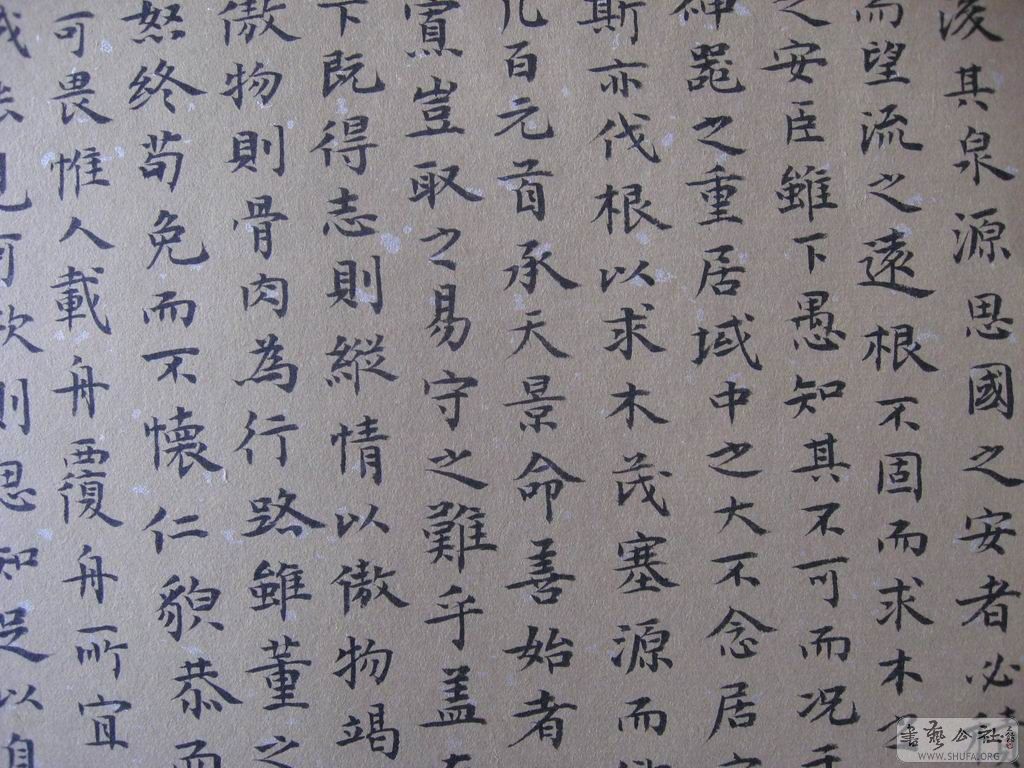 浚其泉源思國之安者必
而望流之遠根不固而求木之
之安臣雖下愚知其不可而况乎
神器之重居域中之大不念居安
斯亦伐根以求木茂塞源而
凡百元首承天景命善始者
寡豈取之易守之難乎盖
下既得志則縱情以傲物竭
傲物則骨肉為行路雖董之
怒終苟免而不懷仁貌恭而
可畏惟人載舟覆舟所宜
誠能見可欲則思知足以自
書藝公社
WWW.SHUFA.ORG